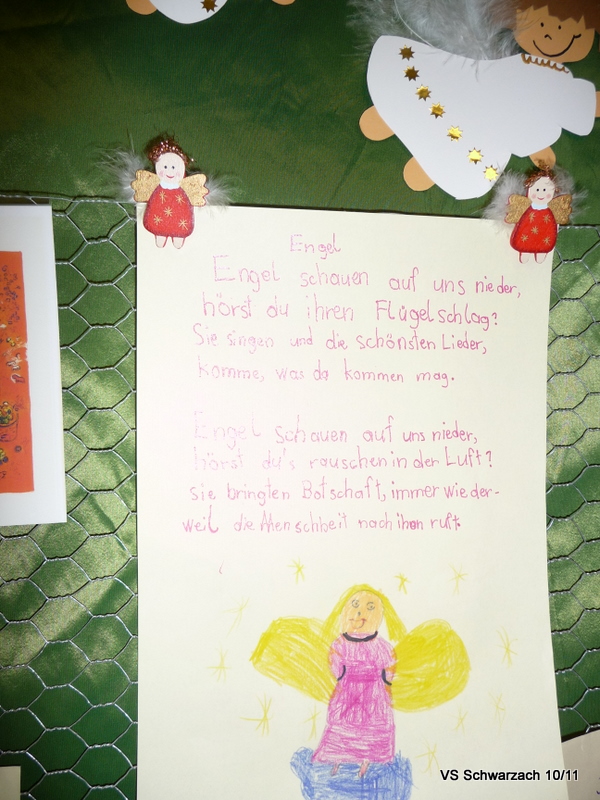 Engel
Engel schauen auf uns nieder,
hörst du ihren Flügelschlag?
Sie singen und die schönsten Lieder,
komme, was da kommen mag.
Engel schauen auf uns nieder,
hörst du's rauschen in der Luft?
sie bringten Botschaft, immer wieder-
weil die Menschheit nach ihnen ruft.
VS Schwarzach 10/11